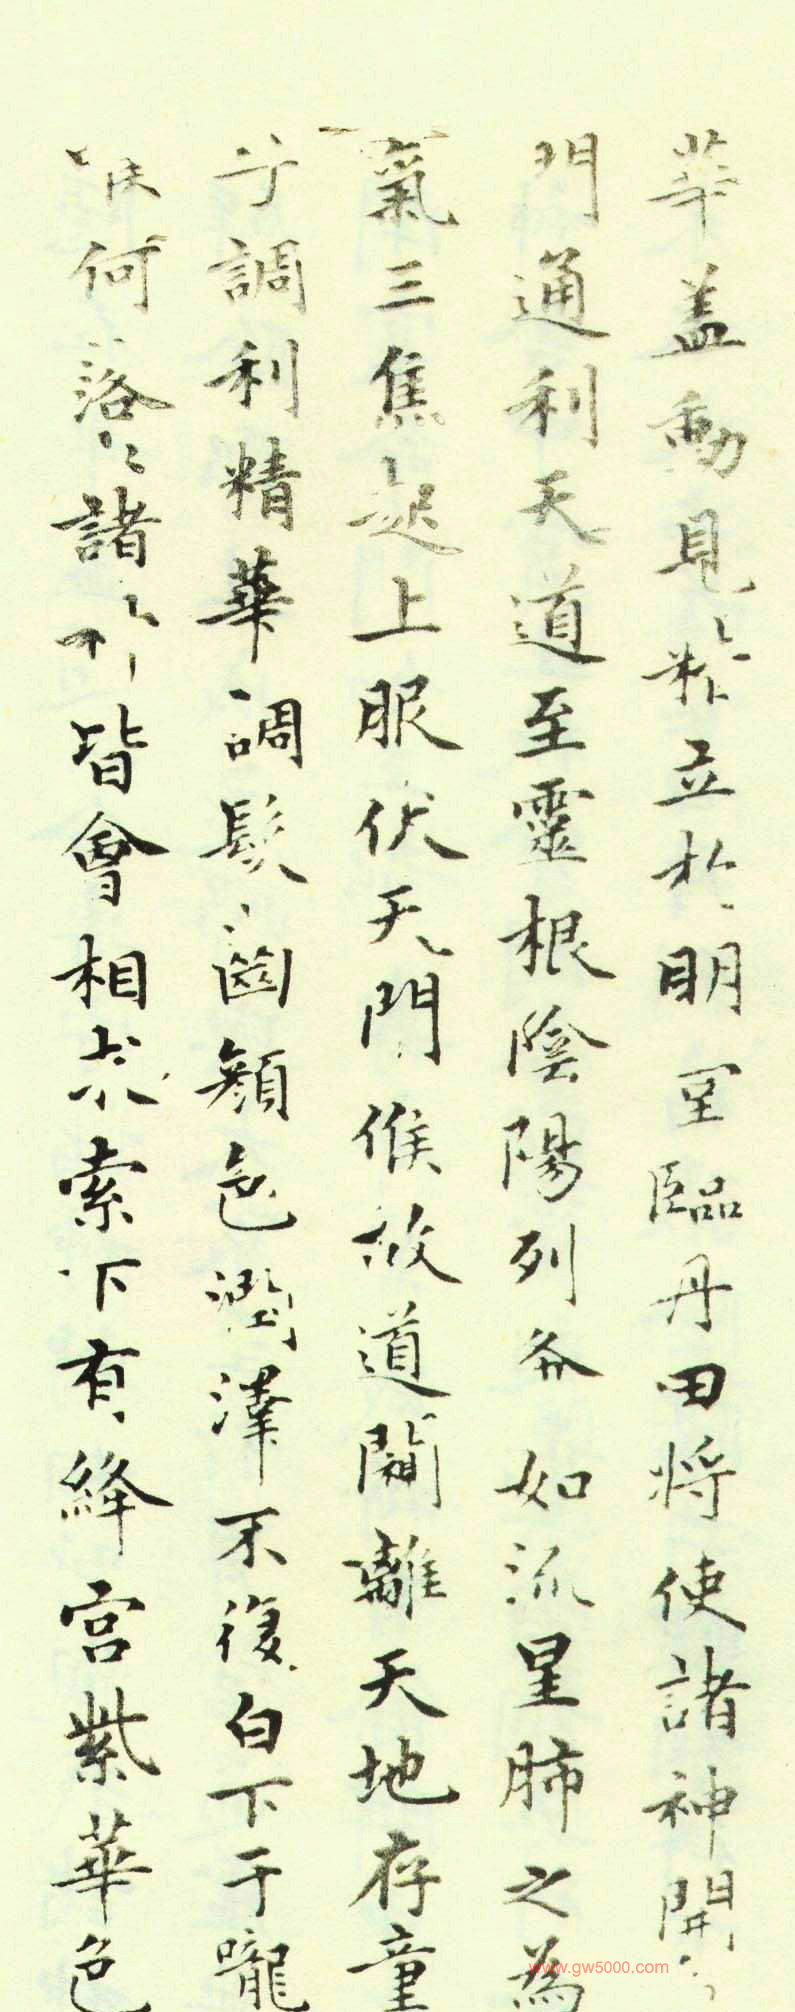 華盖動見精立於明堂臨丹田将使諸神開
門通利天道至靈根陰陽列布如流星肺之為
氣三焦起上服伏天門候故道闚離天地存童
子調利精華調髮齒顏色潤澤不復白下于嚨
喉何落落諸神皆會相求索下有絳宮紫華色
www.gw5000.com